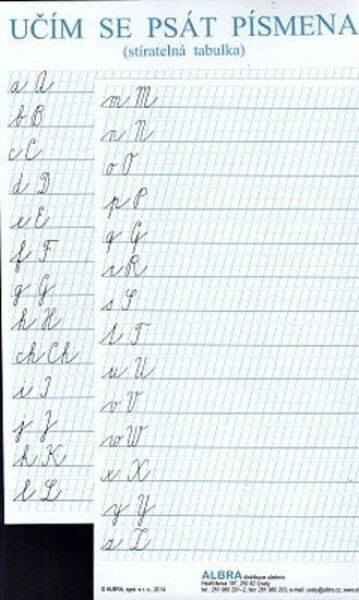 UČÍM SE PSÁT PÍSMENA
(stíratelná tabulka)
a A
b B
c C
d D
e E
f F
g G
h H
ch Ch
i I
j J
k K
l L
m M
n N
o O
p P
q Q
r R
s S
t T
u U
v V
w W
x X
y Y
z Z
ALBRA distribuce učebnic
© ALBRA, spol. s r. o., 2014